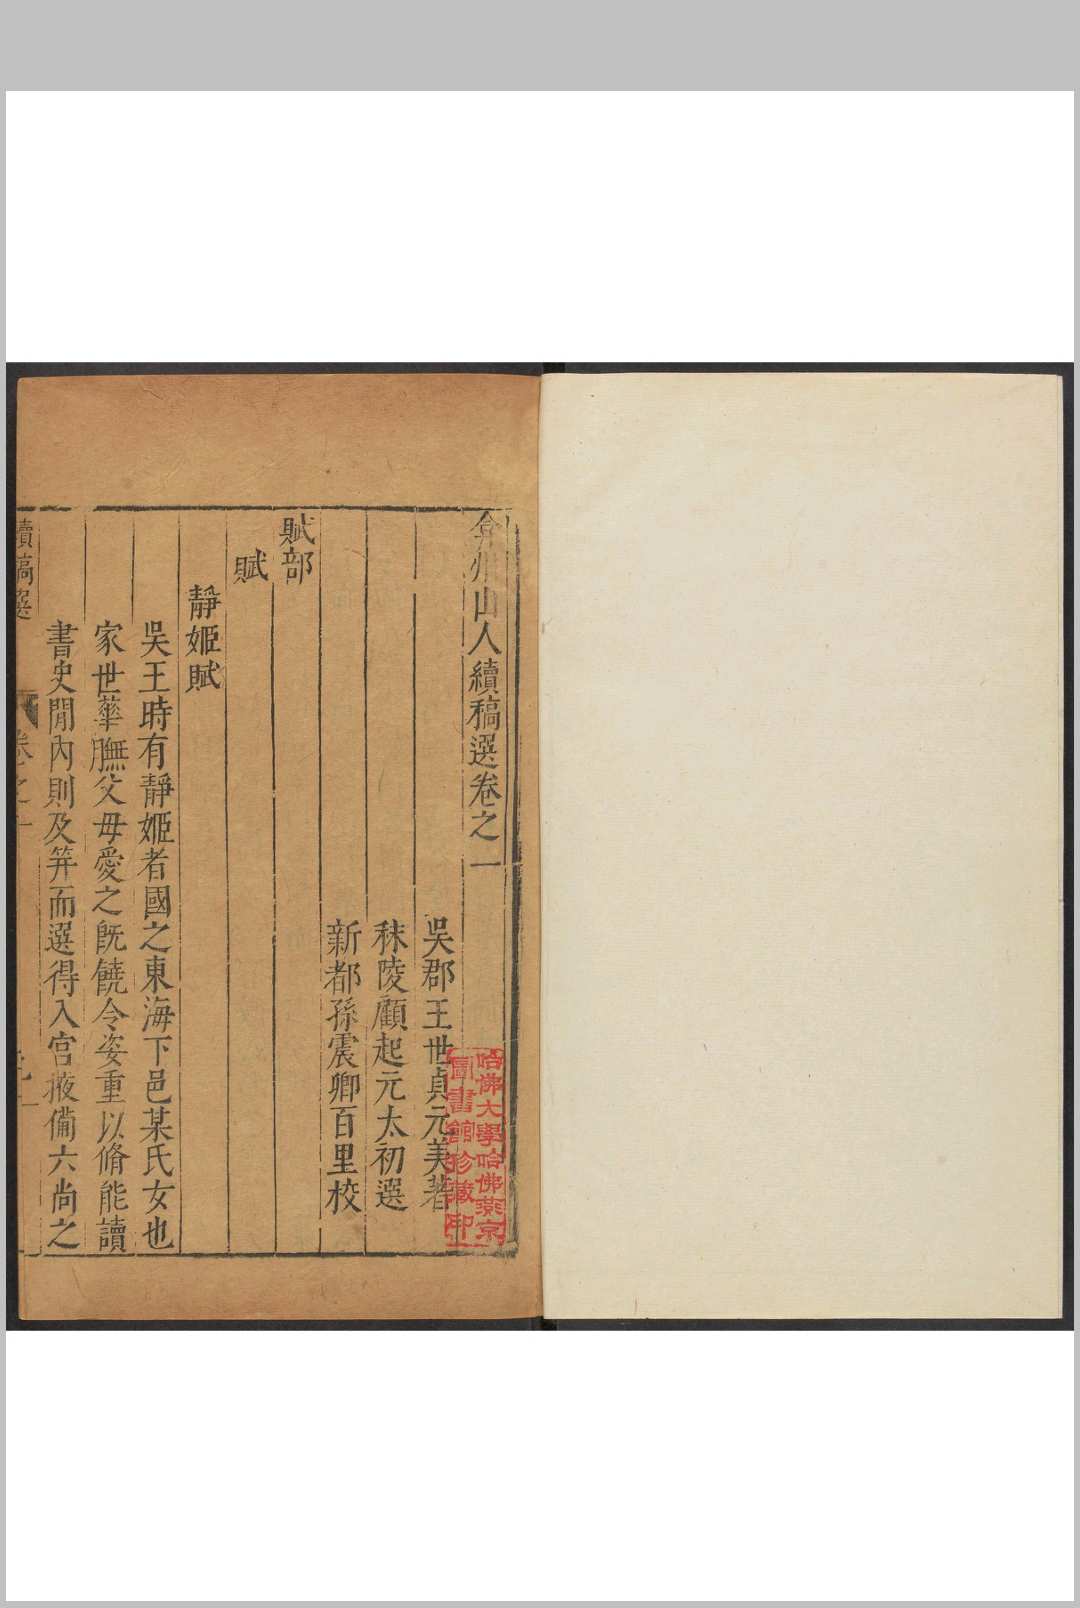 弇州山人續稿選卷之一
吳郡王世貞元美著
秣陵顧起元太初選
新都孫震卿百里校
賦部
賦
靜姬賦
吳王時有靜姬者國之東海下邑某氏女也
家世華膴父母愛之旣饒令姿重以脩能讀
書史閒內則及筓而選得入宮掖備六尚之
續稿選
卷之一
哈佛大學哈佛燕京
圖書館珍藏印